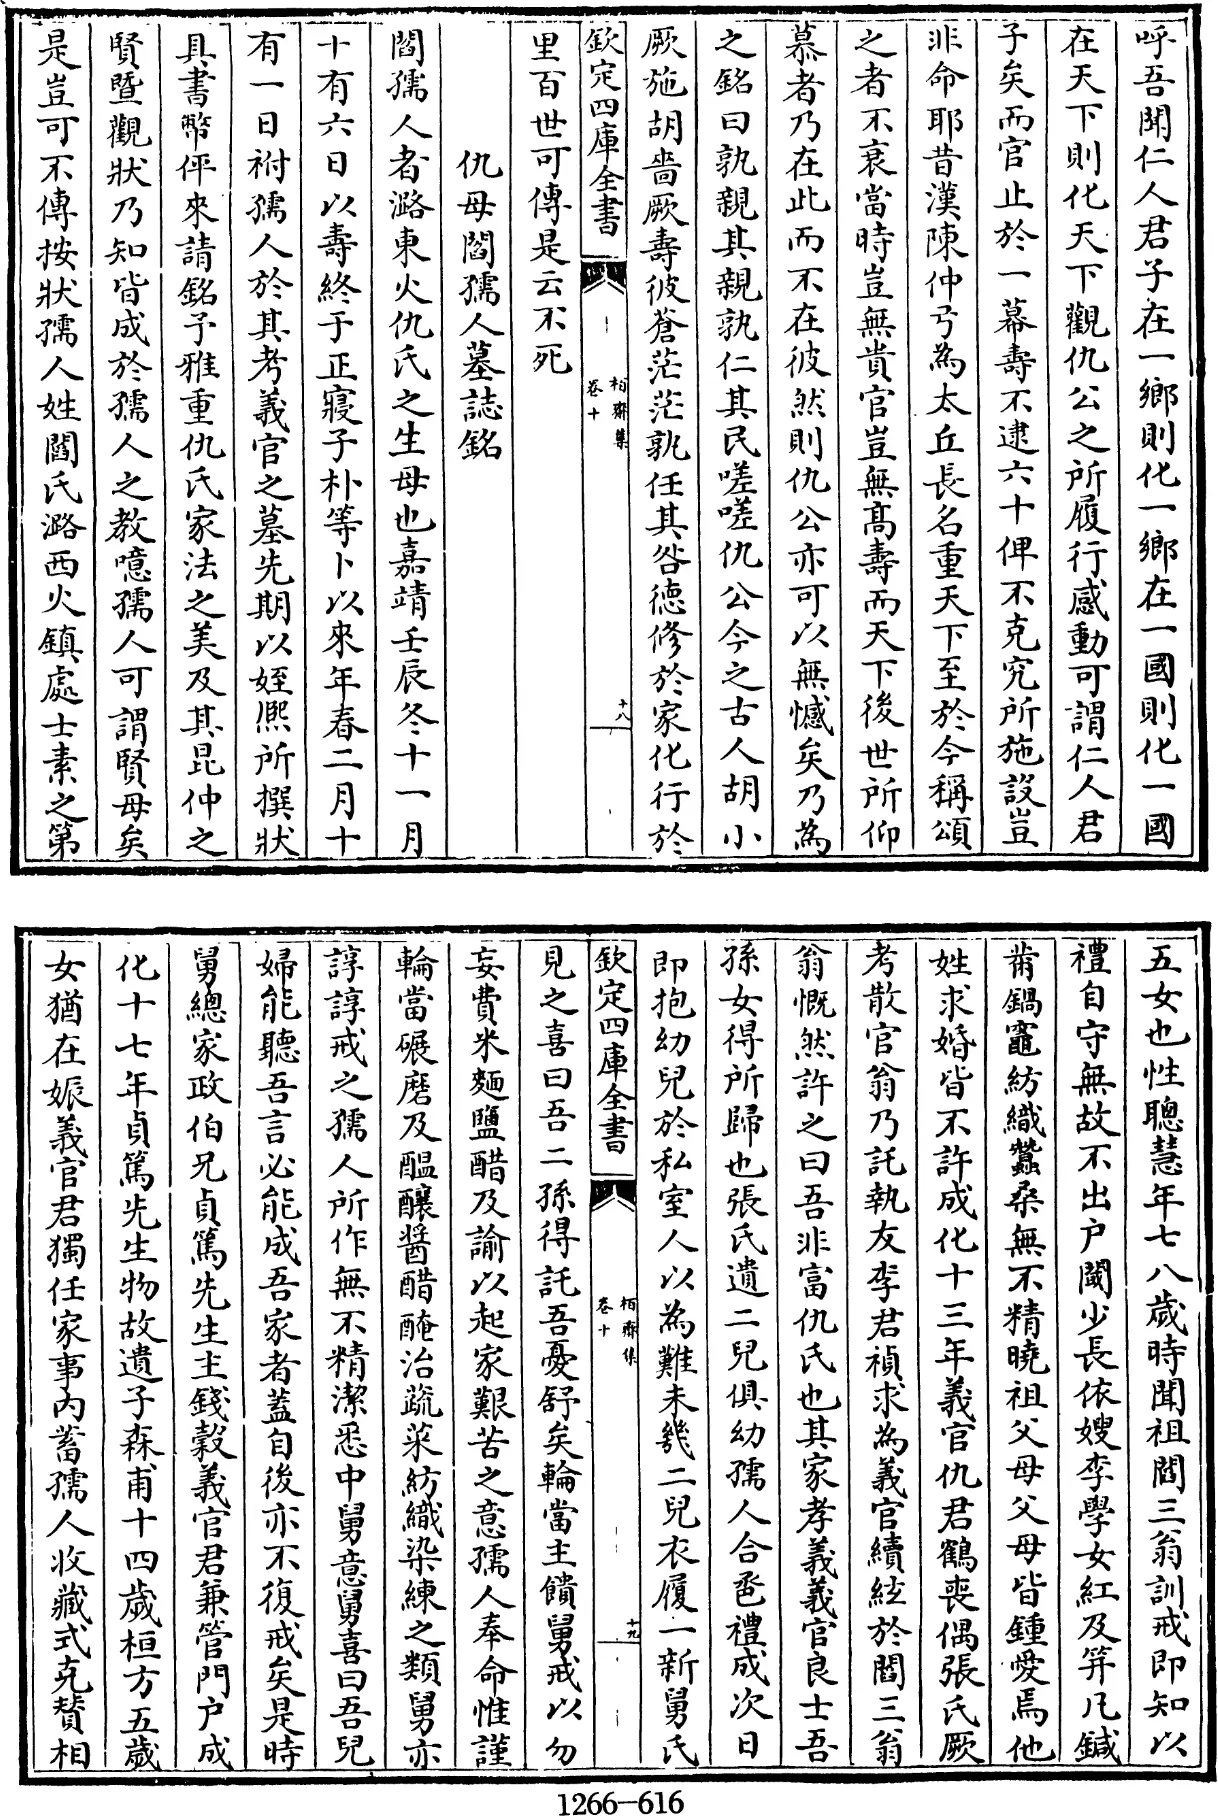 呼吾聞仁人君子在一鄉則化一鄉在一國則化一國
在天下則化天下觀仇公之所履行感動可謂仁人君
子矣而官止於一幕壽不逮六十俾不克究所施設豈
非命耶昔漢陳仲弓為太丘長名重天下至於今稱頌
之者不衰當時豈無貴官豈無髙壽而天下後世所仰
慕者乃在此而不在彼然則仇公亦可以無憾矣乃為
之銘曰孰親其親孰仁其民嗟嗟仇公今之古人胡小
厥施胡嗇厥壽彼蒼茫茫孰任其咎德修於家化行於
欽定四庫全書
栢齋集
卷十
十八
里百世可傳是云不死
仇母閻孺人墓誌銘
閻孺人者潞東火仇氏之生母也嘉靖壬辰冬十一月
十有六日以壽終于正寢子朴等卜以來年春二月十
有一日祔孺人於其考義官之墓先期以姪熈所撰狀
具書幣伻來請銘予雅重仇氏家法之美及其昆仲之
賢暨觀狀乃知皆成於孺人之教噫孺人可謂賢母矣
是豈可不傳按狀孺人姓閻氏潞西火鎮處士素之第
五女也性聰慧年七八歲時聞祖閻三翁訓戒即知以
禮自守無故不出户閾少長依嫂李學女紅及笄凡鍼
黹鍋竈紡織蠶桑無不精曉祖父母父母皆鍾愛焉他
姓求婚皆不許成化十三年義官仇君鶴喪偶張氏厥
考散官翁乃託執友李君禎求為義官續絃於閻三翁
翁慨然許之曰吾非富仇氏也其家孝義義官良士吾
孫女得所歸也張氏遺二兒俱幼孺人合巹禮成次日
即抱幼兒於私室人以為難未幾二兒衣履一新舅氏
欽定四庫全書
栢齋集
卷十
十九
見之喜曰吾二孫得託吾憂舒矣輪當主饋舅戒以勿
妄費米麵鹽醋及諭以起家艱苦之意孺人奉命惟謹
輪當碾磨及醞釀醬醋醃治蔬菜紡織染練之類舅亦
諄諄戒之孺人所作無不精潔悉中舅意舅喜曰吾兒
婦能聽吾言必能成吾家者蓋自後亦不復戒矣是時
舅總家政伯兄貞篤先生主錢穀義官君兼管門户成
化十七年貞篤先生物故遺子森甫十四歲桓方五歲
女猶在娠義官君獨任家事內蓄孺人收藏式克賛相
1266—616